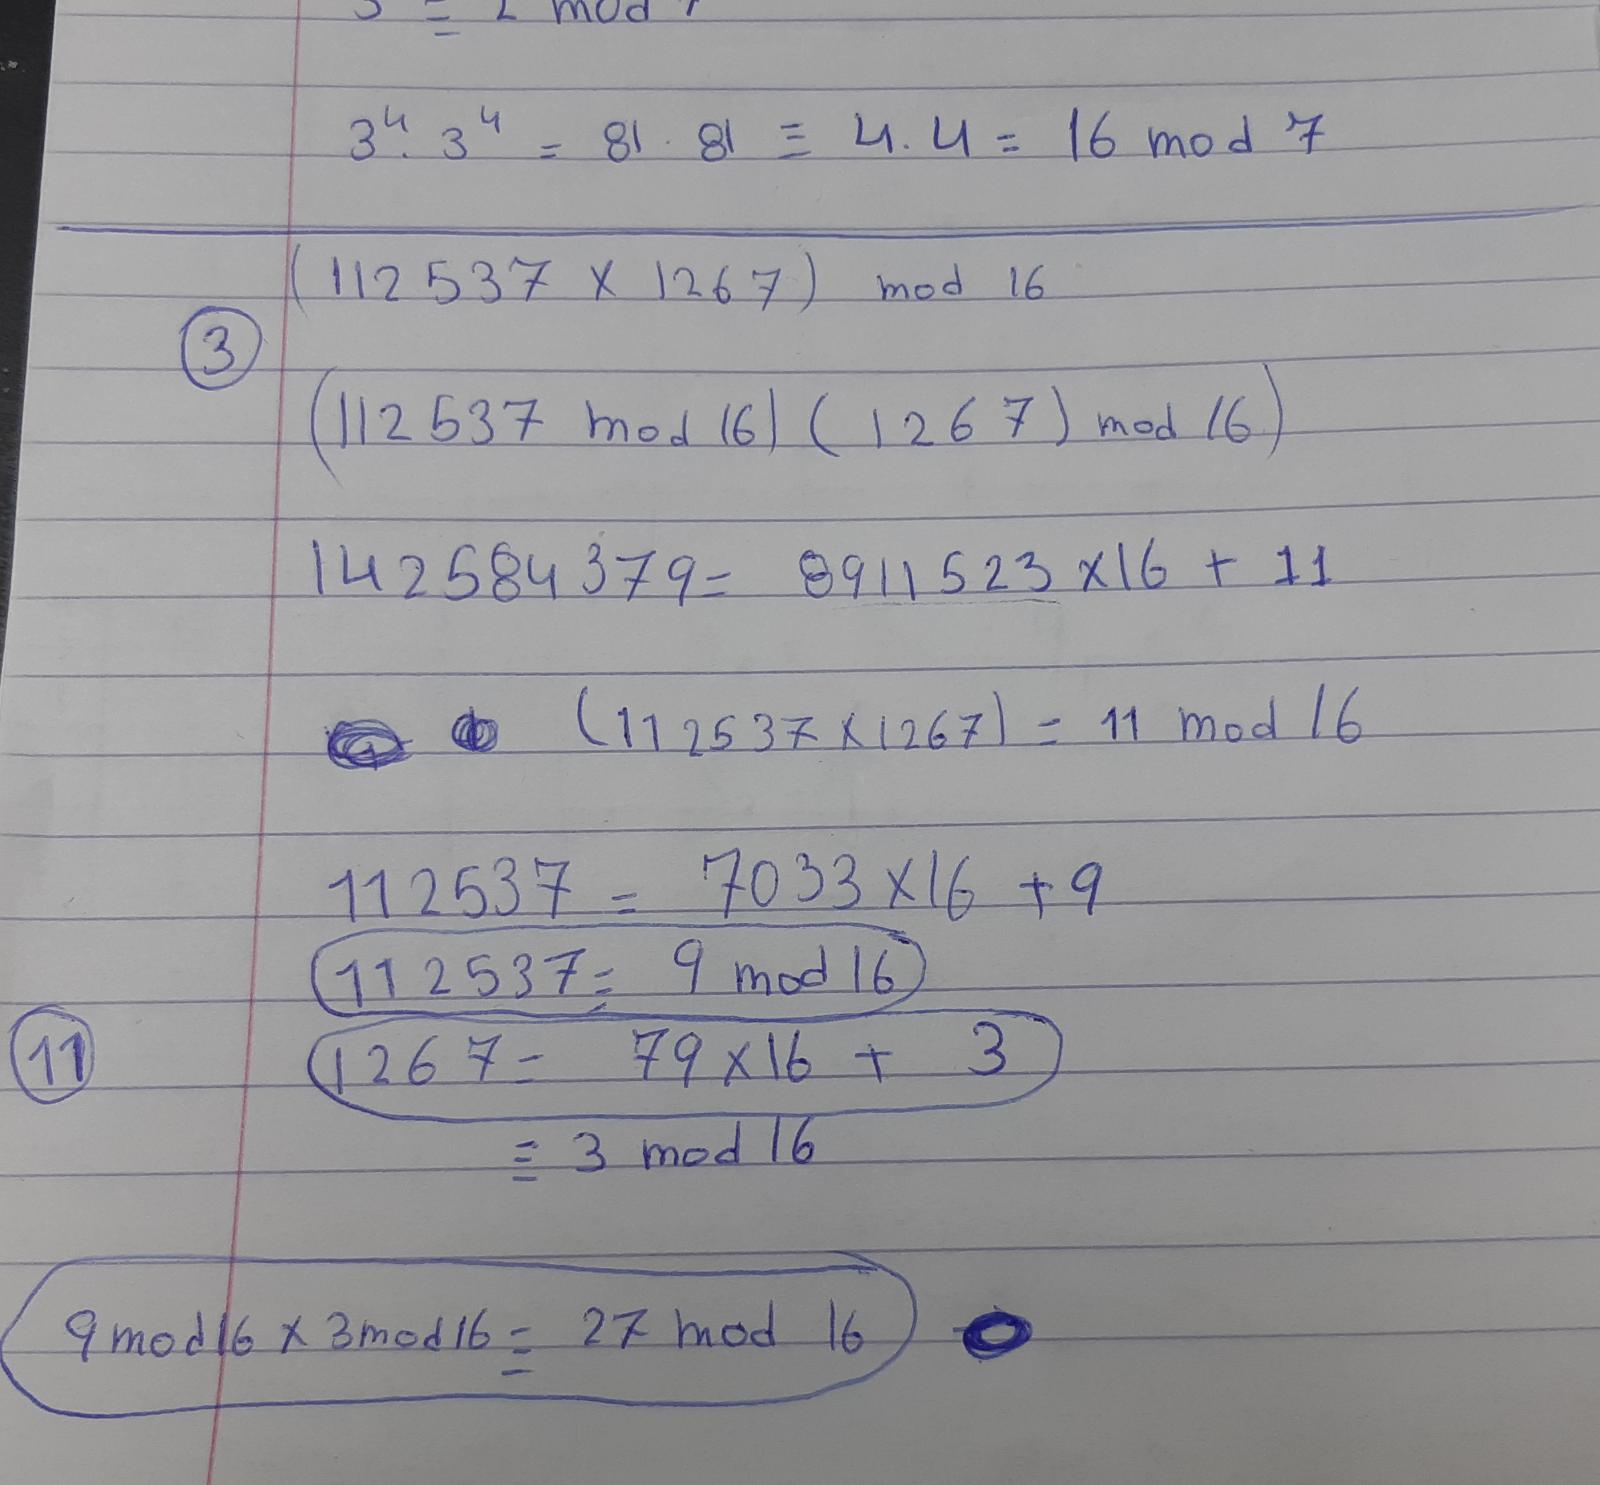 ≡ 2 mod 7
3⁴ . 3⁴ = 81 . 81 ≡ 4 . 4 = 16 mod 7
(112537 x 1267) mod 16
3
(112537 mod 16) (1267) mod 16)
142584379 = 8911523 x 16 + 11
(112537 x 1267) = 11 mod 16
112537 = 7033 x 16 + 9
112537 ≡ 9 mod 16
11
1267 = 79 x 16 + 3
≡ 3 mod 16
9 mod 16 x 3 mod 16 ≡ 27 mod 16